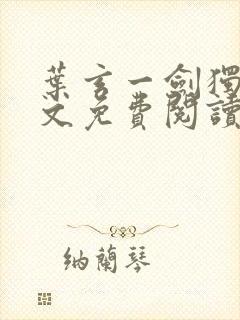 葉玄一劍獨
文免費閱讀
納蘭琴